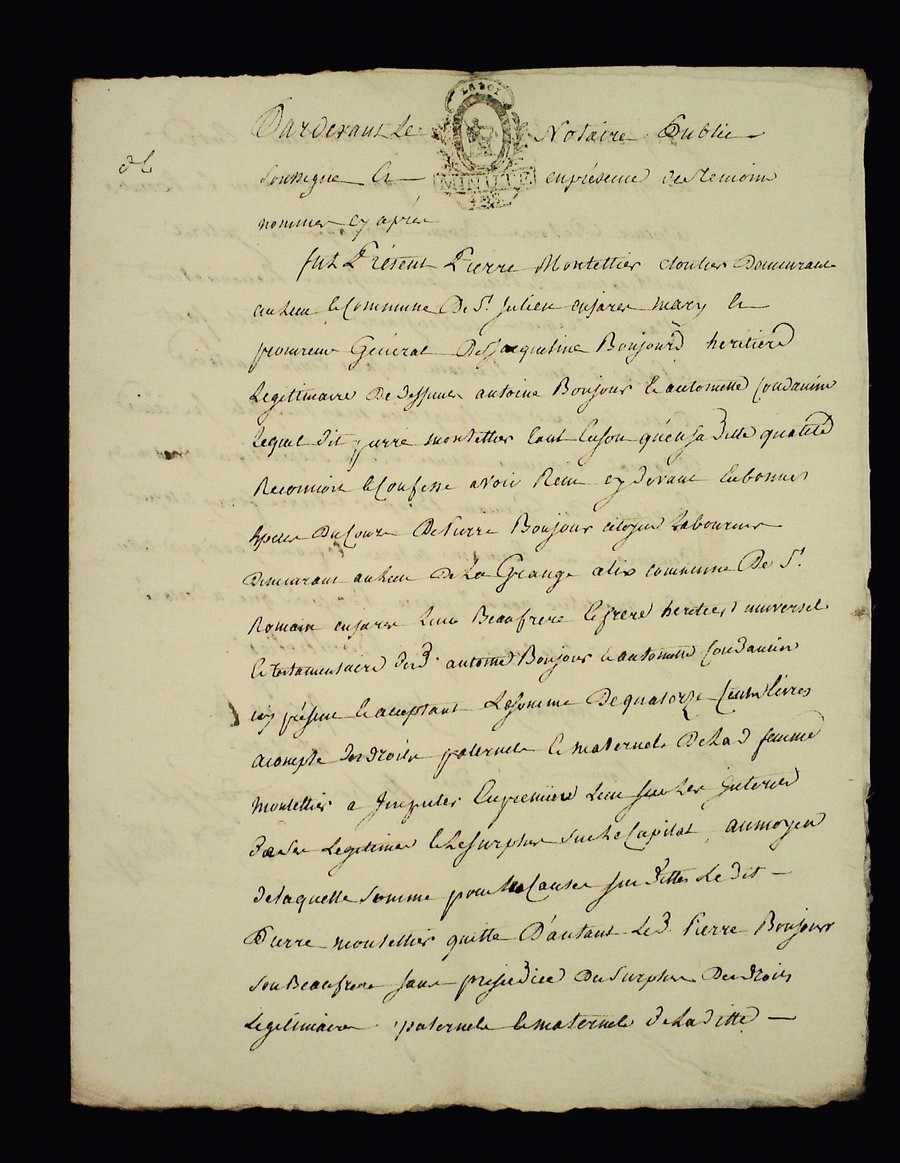 LA LOI
Pardevant Le Notaire Public
Soussigné & MINUTE en présence des temoins
nommés cy après
fut Présent Pierre Montellier cloutier Demeurant
au lieu & Commune De St. Julien en jarez mary &
procureur Général De Jacqueline Bonjour héritière
Légitimaire De deffunts antoine Bonjour & antoinette Coudanin
Lequel dit pierre montellier tant en son qu'en sa ditte qualité
Reconnoit & Confesse avoir Reçu cy devant en bonnes
Espèces Du Cours De Pierre Bonjour citoyen Laboureur
Demeurant au lieu De La Grange alix commune De St.
Romain en jarez Leur Beaufrere & frere heritier universel
& testamentaire des d. antoine Bonjour & antoinette Coudanin
icy présent & acceptant La somme De quatorze Cents livres
a compte des droits paternels & maternels De La d. femme
montellier a Imputer en premiere Lieu sur Les Interets
de ses Legitimes & Le Surplus sur Le Capital, au moyen
de laquelle somme pour les Causes sus dittes Le dit
Pierre montellier quitte D'autant Le d. Pierre Bonjour
son Beaufrere sans préjudice Du Surplus Des droits
Legitimaires paternels & maternels de La ditte